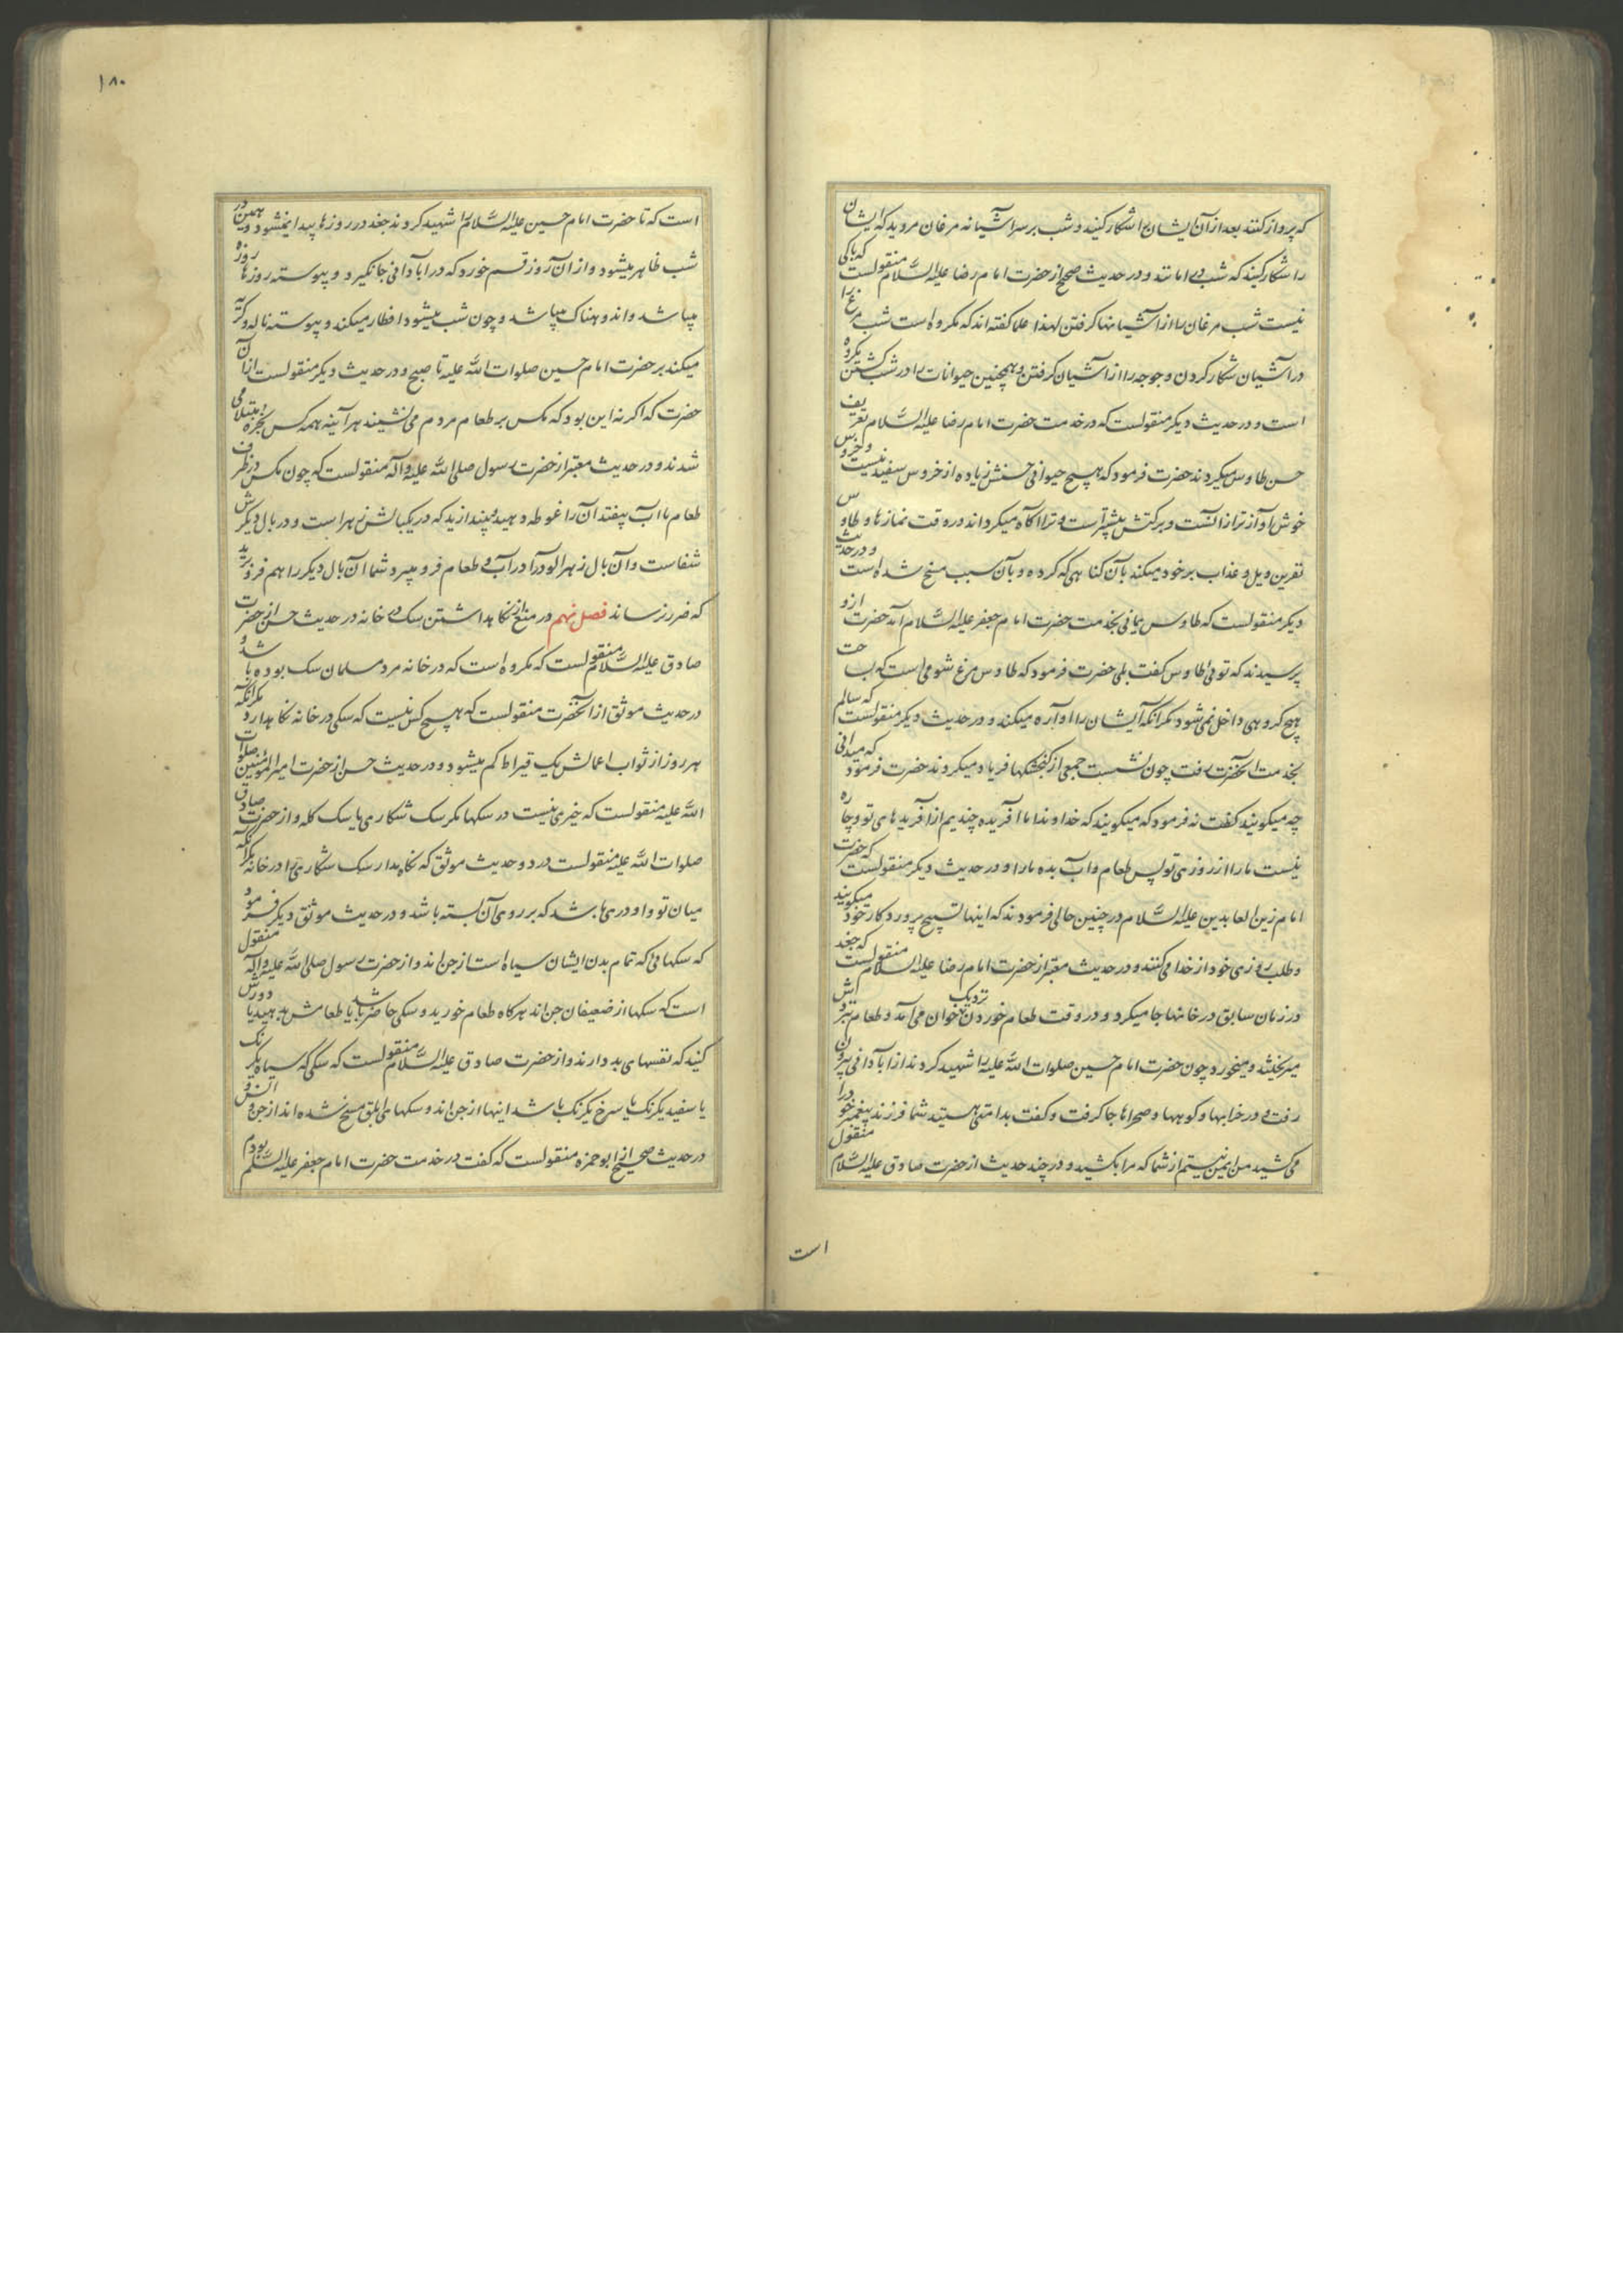 که پرواز کنند بعد از آن ایشان را شکار کنید و شب بر سر آشیانه مرغان مروید که ایشان
را شکار کنید که شب در امانند و در حدیث صحیح از حضرت امام رضا علیه السّلام منقولست که باکی
نیست شب مرغان را از آشیانها گرفتن لهذا علما گفته اند که مکروه است شب مرغ را
در آشیان شکار کردن و جوجه را از آشیان گرفتن و همچنین حیوانات را در شب کشتن مکروه
است و در حدیث دیگر منقولست که در خدمت حضرت امام رضا علیه السّلام تعریف
حسن طاوس میکردند حضرت فرمود که هیچ حیوانی حسنش زیاده از خروس سفید نیست و خروس
خوش آوازتر از آنست و برکتش بیشتر است و ترا آگاه میگرداند در وقت نمازها و طاوس
نفرین ویل و عذاب بر خود میکند بآن گناهی که کرده و بآن سبب مسخ شده است و در حدیث
دیگر منقولست که طاوس یمانی بخدمت حضرت امام جعفر علیه السّلام آمد حضرت از او
پرسیدند که توئی طاوس گفت بلی حضرت فرمود که طاوس مرغ شومی است که بساحت
هیچ گروهی داخل نمی شود مگر آنکه ایشان را آواره میکند و در حدیث دیگر منقولست که سالم
بخدمت آنحضرت رفت چون نشست جمعی از گنجشکها فریاد میکردند حضرت فرمود که میدانی
چه میگویند گفت نه فرمود که میگویند که خداوندا ما آفریده چندیم از آفریدهای تو و چاره
نیست ما را از روزی تو پس طعام و آب بده ما را و در حدیث دیگر منقولست که حضرت
امام زین العابدین علیه السّلام در چنین حالی فرمودند که اینها تسبیح پروردگار خود میگویند
و طلب روزی خود از خدا می کنند و در حدیث معتبر از حضرت امام رضا علیه السلام منقولست که جغد
در زمان سابق در خانها جا میکرد و در وقت طعام خوردن نزدیک خوان می آمد و طعام نزدش
میریختند و میخورد چون حضرت امام حسین صلوات اللّه علیه را شهید کردند از آبادانی بیرون
رفت و در خرابها و کوهها و صحراها جا گرفت و گفت بد امتی هستید شما فرزند پیغمبر خود را
می کشید من ایمن نیستم از شما که مرا بکشید و در چند حدیث از حضرت صادق علیه السّلام منقول
است
۱۸۰
است که تا حضرت امام حسین علیه السّلام را شهید کردند جغد در روزها پیدا نمیشود و همین در
شب ظاهر میشود و از آن روز قسم خورد که در آبادانی جا نگیرد و پیوسته روزها روزه
میباشد و اندوهناک میباشد و چون شب میشود افطار میکند و پیوسته ناله و گریه
میکند بر حضرت امام حسین صلوات اللّه علیه تا صبح و در حدیث دیگر منقولست از آن
حضرت که اگر نه این بود که مگس بر طعام مردم می نشیند هر آینه همه کس بخوره مبتلا می
شدند و در حدیث معتبر از حضرت رسول صلی اللّه علیه وآله منقولست که چون مگس در ظرف
طعام یا آب بیفتد آن را غوطه دهید و بیندازید که در یکبالش زهر است و در بال دیگرش
شفاست و آن بال زهرآلود را در آب و طعام فرو میبرد شما آن بال دیگر را هم فرو برید
که ضرر نرساند فصل نهم در منع از نگاهداشتن سگ در خانه در حدیث حسن از حضرت
صادق علیه السّلام منقولست که مکروه است که در خانه مرد مسلمان سگ بوده باشد و
در حدیث موثق از آنحضرت منقولست که هیچ کس نیست که سگی در خانه نگاهدارد مگر آنکه
هر روز از ثواب اعمالش یک قیراط کم میشود و در حدیث حسن از حضرت امیر المؤمنین صلوات
اللّه علیه منقولست که خیری نیست در سگها مگر سگ شکاری یا سگ گله و از حضرت صادق
صلوات اللّه علیه منقولست در دو حدیث موثق که نگاه مدار سگ شکاری را در خانه مگر آنکه
میان تو و او دری باشد که بر روی آن بسته باشد و در حدیث موثق دیگر فرمود
که سگهائی که تمام بدن ایشان سیاه است از جن اند و از حضرت رسول صلی اللّه علیه وآله منقول
است که سگها از ضعیفان جن اند هرگاه طعام خورید و سگی حاضر باشد یا طعامش بدهید یا دورش
کنید که نفسهای بد دارند و از حضرت صادق علیه السّلام منقولست که سگی که سیاه یکرنگ
یا سفید یکرنگ یا سرخ یکرنگ باشد اینها از جن اند و سگهای ابلق مسخ شده اند از جن و انس و
در حدیث صحیح از ابو حمزه منقولست که گفت در خدمت حضرت امام جعفر علیه السّلم بودم